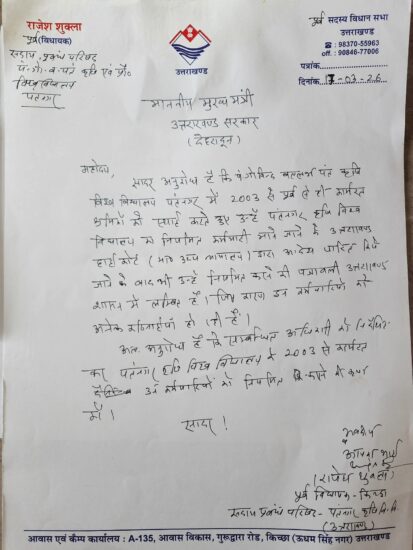 राजेश शुक्ला
पूर्व (विधायक)
सदस्य, प्रबन्ध परिषद
पं. गो. ब. पंत कृषि एवं प्रौ०
विश्वविद्यालय
पंतनगर
उत्तराखण्ड
पूर्व सदस्य विधान सभा
उत्तराखण्ड
☎ : 98370-55963
off.: 90846-77006
पत्रांक
दिनांक 17-03-26
माननीय मुख्यमंत्री
उत्तराखण्ड सरकार
(देहरादून)
महोदय,
सादर अनुरोध है कि पं गोविन्द बल्लभ पंत कृषि
विश्व विद्यालय पंतनगर में 2003 से पूर्व से ही कार्यरत
श्रमिकों को स्थाई करते हुए उन्हें पंतनगर कृषि विश्व
विद्यालय का नियमित कर्मचारी माने जाने के उत्तराखण्ड
हाई कोर्ट (मा० उच्च न्यायालय) द्वारा आदेश पारित किये
जाने के बाद भी उन्हें नियमित करने की पत्रावली उत्तराखण्ड
शासन में लम्बित है। जिस कारण इन कर्मचारियों को
अनेक कठिनाईयाँ हो रही हैं।
अतः अनुरोध है कि सम्बन्धित अधिकारी को निर्देशित
कर पंतनगर कृषि विश्व विद्यालय के 2003 से कार्यरत
उन कर्मचारियों को नियमित करने की कृपा
करें।
सादर!
भवदीय
(राजेश शुक्ला)
पूर्व विधायक- किच्छा
सदस्य प्रबंध परिषद- पंतनगर कृषि वि.वि.
(उत्तराखण्ड)
आवास एवं कैम्प कार्यालय : A-135, आवास विकास, गुरुद्वारा रोड, किच्छा (ऊधम सिंह नगर) उत्तराखण्ड